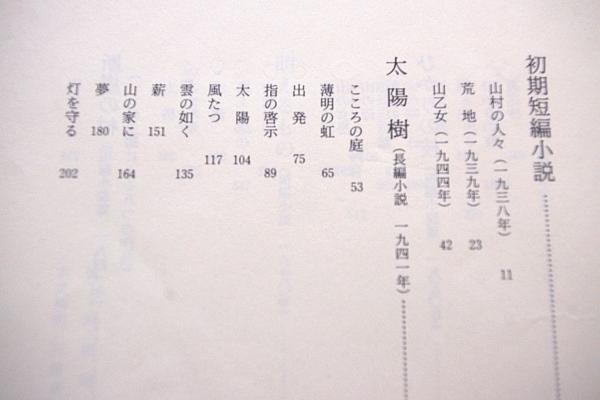 初期短編小説
山村の人々（一九三八年） 11
荒地（一九三九年） 23
山乙女（一九四四年） 42
太陽樹（長編小説 一九四一年）
こころの庭 53
薄明の虹 65
出発 75
指の啓示 89
太陽 104
風たつ 117
雲の如く 135
薪 151
山の家に 164
夢 180
灯を守る 202